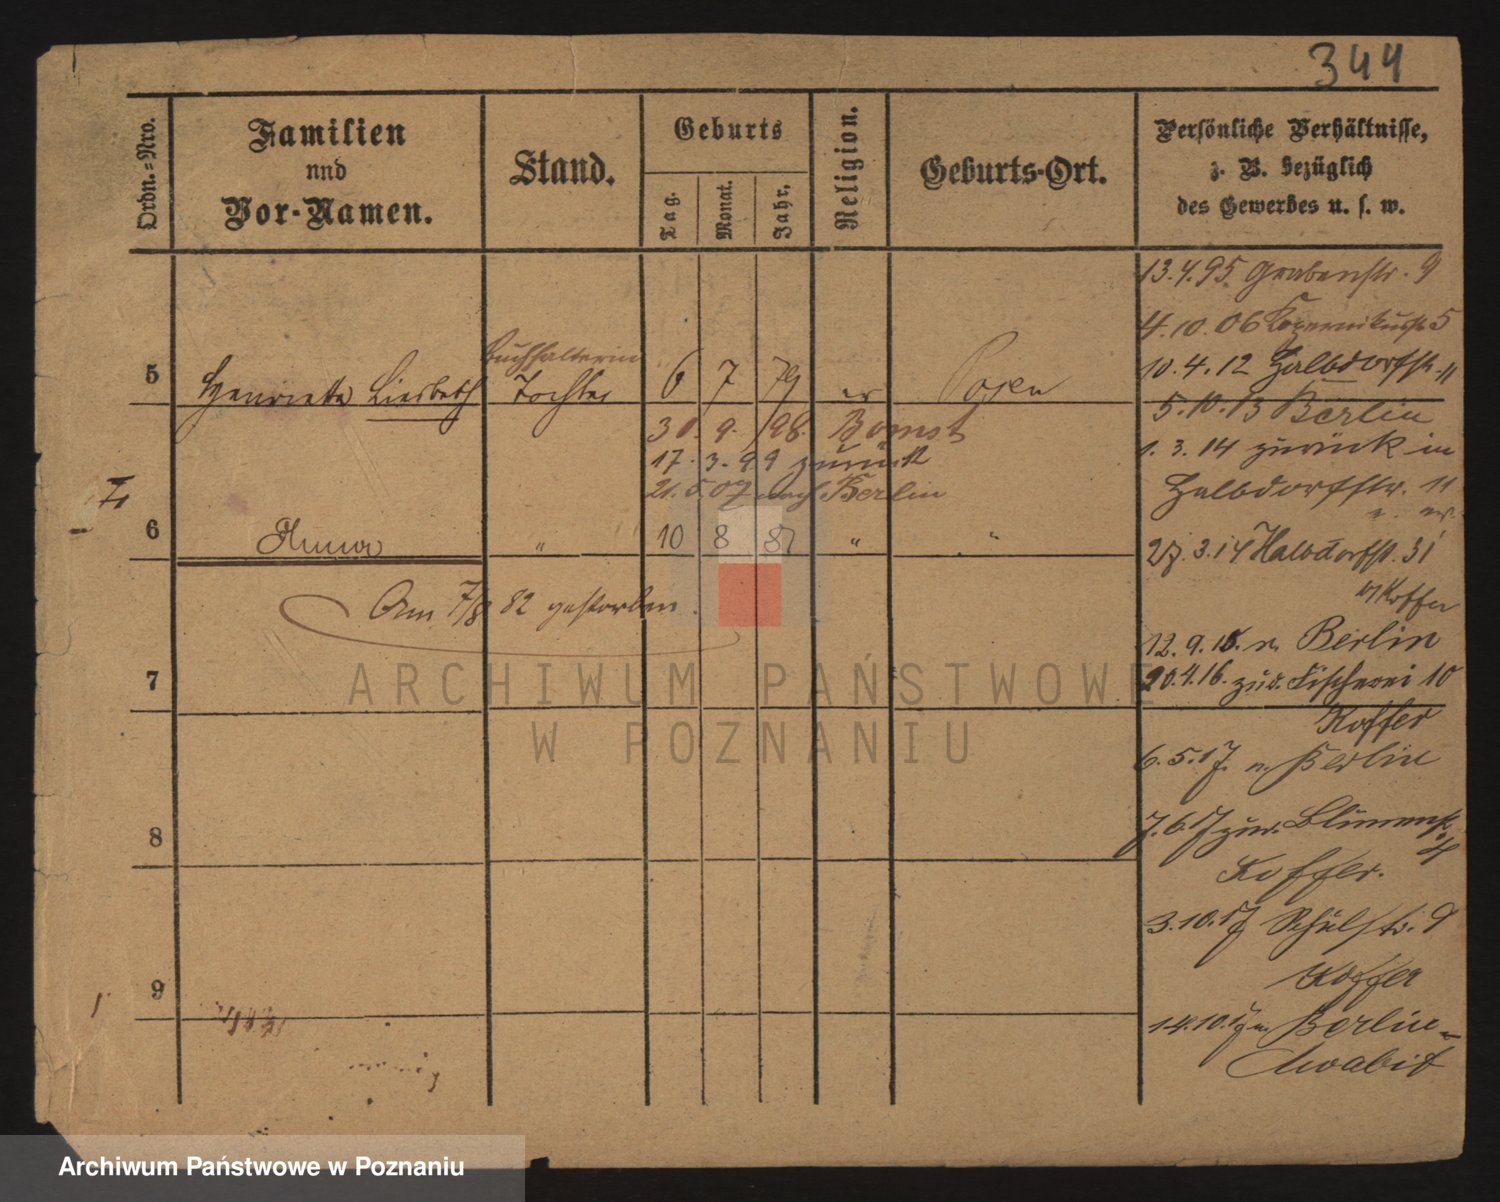 344
Ordn.-Nro.
Familien
und
Vor-Namen.
Stand.
Geburts
Tag.
Monat.
Jahr.
Religion.
Geburts-Ort.
Persönliche Verhältnisse,
z. B. bezüglich
des Gewerbes u. s. w.
13.4.95 Grabenstr. 9
4.10.06 Kopernikusstr 5
Buchhalterin
5 Henriette Liesbeth Tochter 6 7 79 Posen
10.4.12 Halbdorfstr. 11
5.10.13 Berlin
30. 9. 98. Bomst
1.3.14 zurück in
17. 3. 99 zurück
Halbdorfstr. 11
21.5.07 nach Berlin
6 Anna " 10 8 81 " "
27.3.14 Halbdorfstr. 31
b/Koffer
Am 7/8 82 gestorben.
12.9.15. n. Berlin
7
20.4.16. zur. Fischerei 10
Koffer
6.5.17. n. Berlin
7.6.17 zur. Blumenstr. 4
8
Koffer.
3.10.17 Schulstr. 9
Koffer
9
14.10.17 n. Berlin-
Moabit
ARCHIWUM PAŃSTWOWE
W POZNANIU
Archiwum Państwowe w Poznaniu